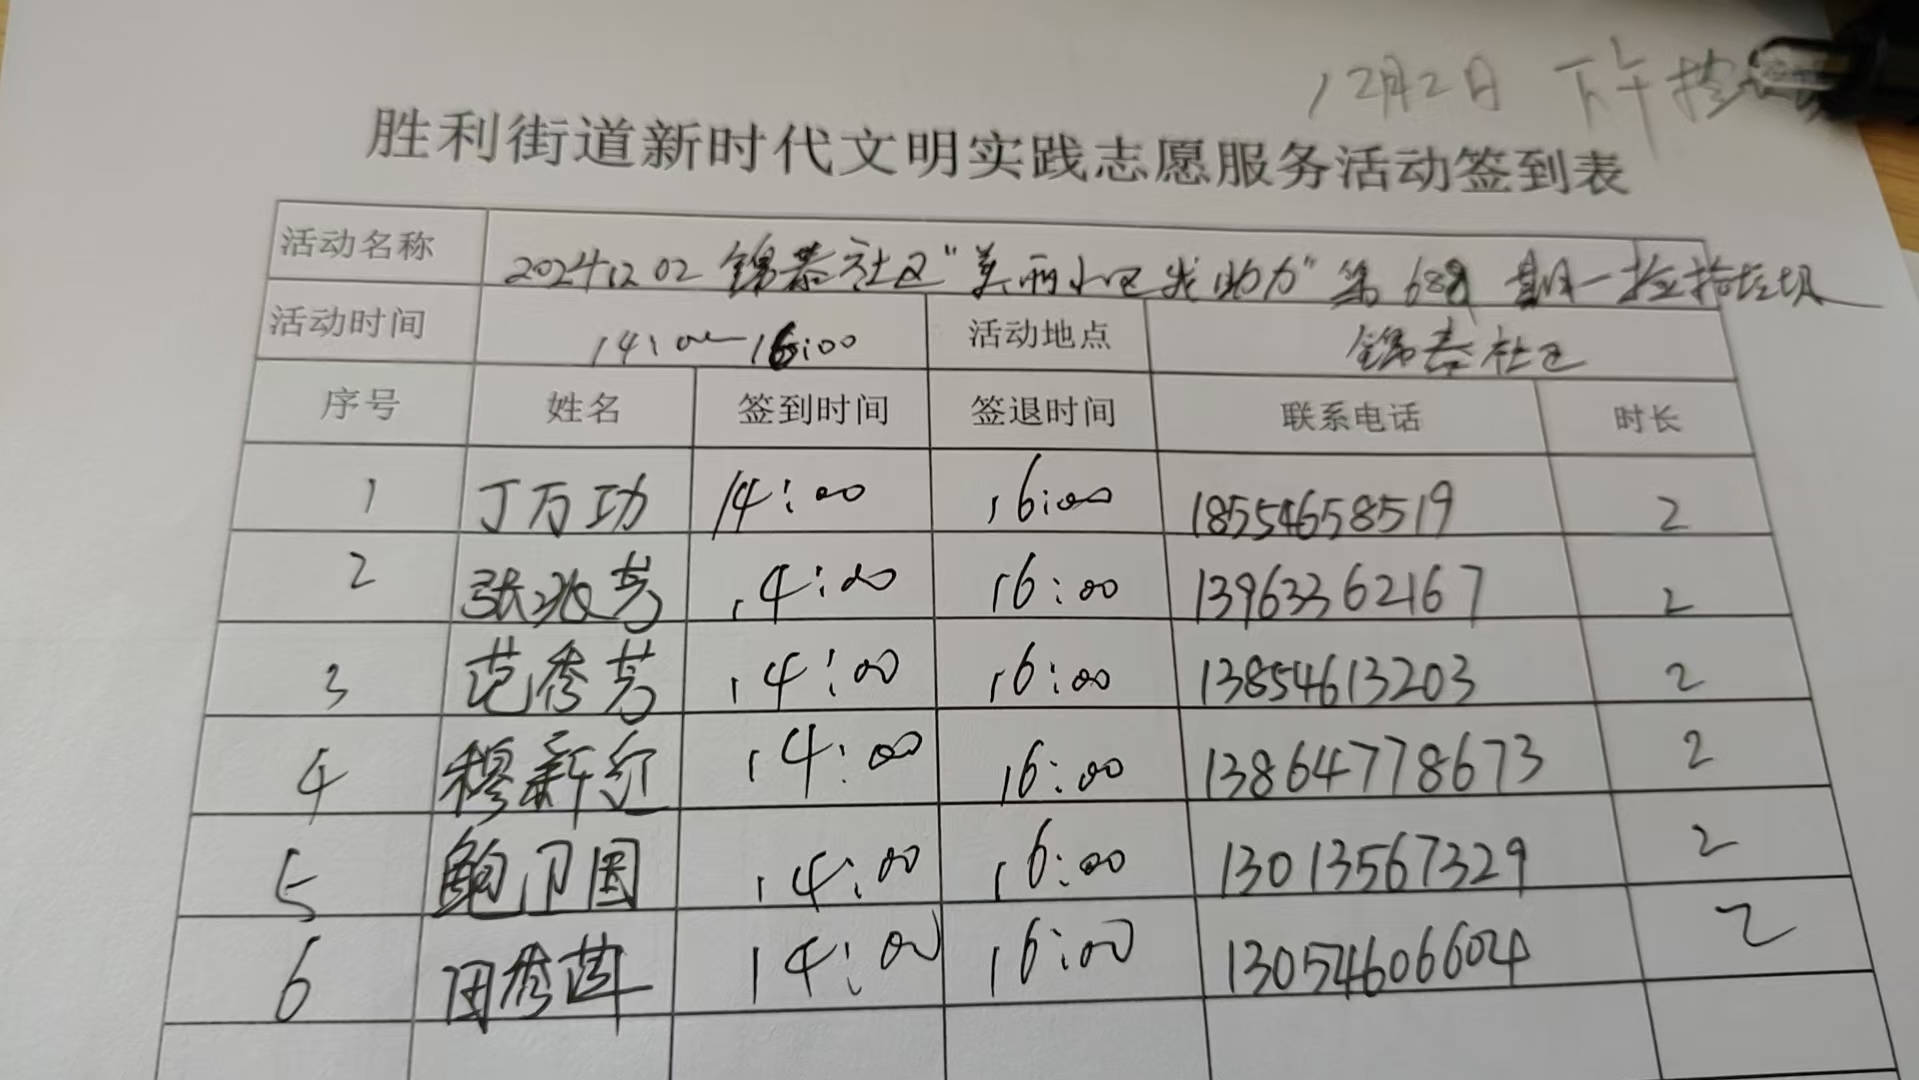 12月2日 下午
胜利街道新时代文明实践志愿服务活动签到表
活动名称 20241202 锦泰社区“美丽小区我助力”第689期—捡拾垃圾
活动时间 14:00—16:00 活动地点 锦泰社区
序号 姓名 签到时间 签退时间 联系电话 时长
1 丁万功 14:00 16:00 18554658519 2
2 张淑芳 14:00 16:00 13963362167 2
3 范秀芳 14:00 16:00 13854613203 2
4 穆新红 14:00 16:00 13864778673 2
5 鲍卫国 14:00 16:00 13013567329 2
6 田秀莲 14:00 16:00 13054606604 2